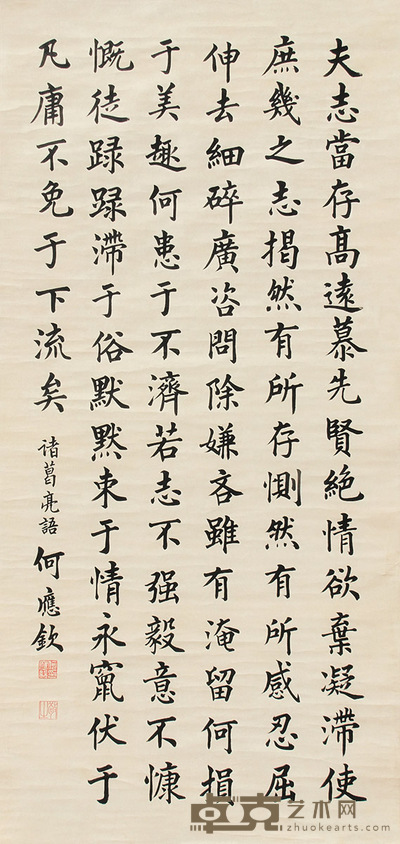 夫志當存髙遠慕先賢絕情欲棄凝滯使
庶幾之志揭然有所存惻然有所感忍屈
伸去細碎廣咨問除嫌吝雖有淹留何損
于美趣何患于不濟若志不强毅意不慷
慨徒碌碌滯于俗默默束于情永竄伏于
凡庸不免于下流矣
諸葛亮語 何應欽
卓克艺术网
zhuokearts.com